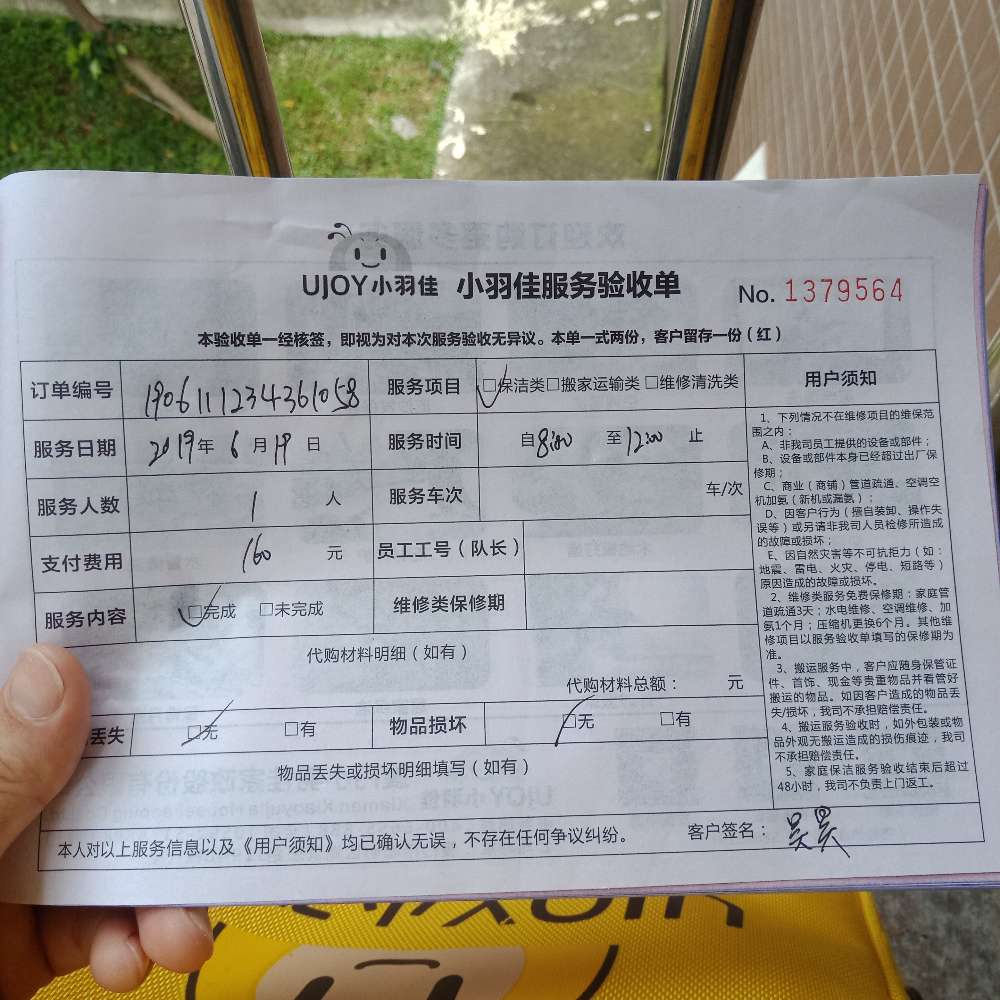 UJOY小羽佳 小羽佳服务验收单 No. 1379564
本验收单一经核签，即视为对本次服务验收无异议。本单一式两份，客户留存一份（红）
订单编号 190611123436 1058 服务项目 □保洁类□搬家运输类 □维修清洗类
服务日期 2019年 6 月 19 日 服务时间 自 8:00 至 12:00 止
服务人数 1 人 服务车次 车/次
支付费用 160 元 员工工号（队长）
服务内容 □完成 □未完成 维修类保修期
代购材料明细（如有）
代购材料总额： 元
丢失 □无 □有 物品损坏 □无 □有
物品丢失或损坏明细填写（如有）
本人对以上服务信息以及《用户须知》均已确认无误，不存在任何争议纠纷。 客户签名：
用户须知
1、下列情况不在维修项目的维保范
围之内：
A、非我司员工提供的设备或部件；
B、设备或部件本身已经超过出厂保
修期；
C、商业（商铺）管道疏通、空调空
机加氨（新机或漏氨）；
D、因客户行为（擅自装卸、操作失
误等）或另请非我司人员检修所造成
的故障或损坏；
E、因自然灾害等不可抗拒力（如：
地震、雷电、火灾、停电、短路等）
原因造成的故障或损坏。
2、维修类服务免费保修期：家庭管
道疏通3天；水电维修、空调维修、加
氨1个月；压缩机更换6个月。其他维
修项目以服务验收单填写的保修期为
准。
3、搬运服务中，客户应随身保管证
件、首饰、现金等贵重物品并看管好
搬运的物品。如因客户造成的物品丢
失/损坏，我司不承担赔偿责任。
4、搬运服务验收时，如外包装或物
品外观无搬运造成的损伤痕迹，我司
不承担赔偿责任。
5、家庭保洁服务验收结束后超过
48小时，我司不负责上门返工。